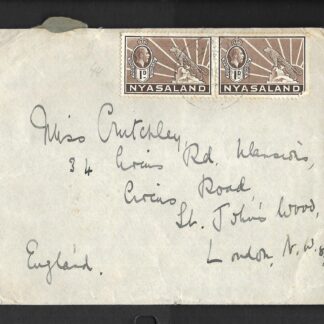 1D 1D
NYASALAND NYASALAND
Miss Crutchley,
34 Circus Rd. Mansions,
Circus Road,
St. John's Wood,
London, N.W.8
England.